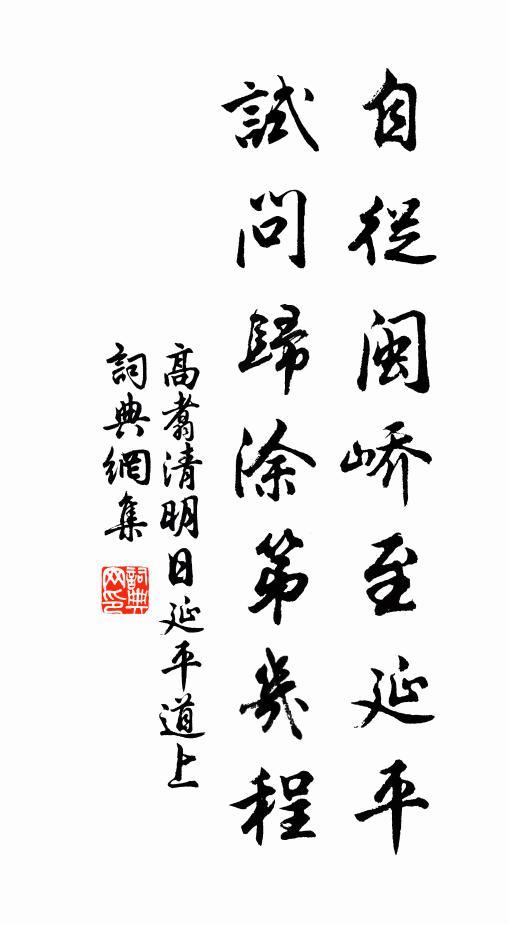 自從閩嶠至延平
試問歸涂第幾程
高翥清明日延平道上
詞典網集
詞典網印